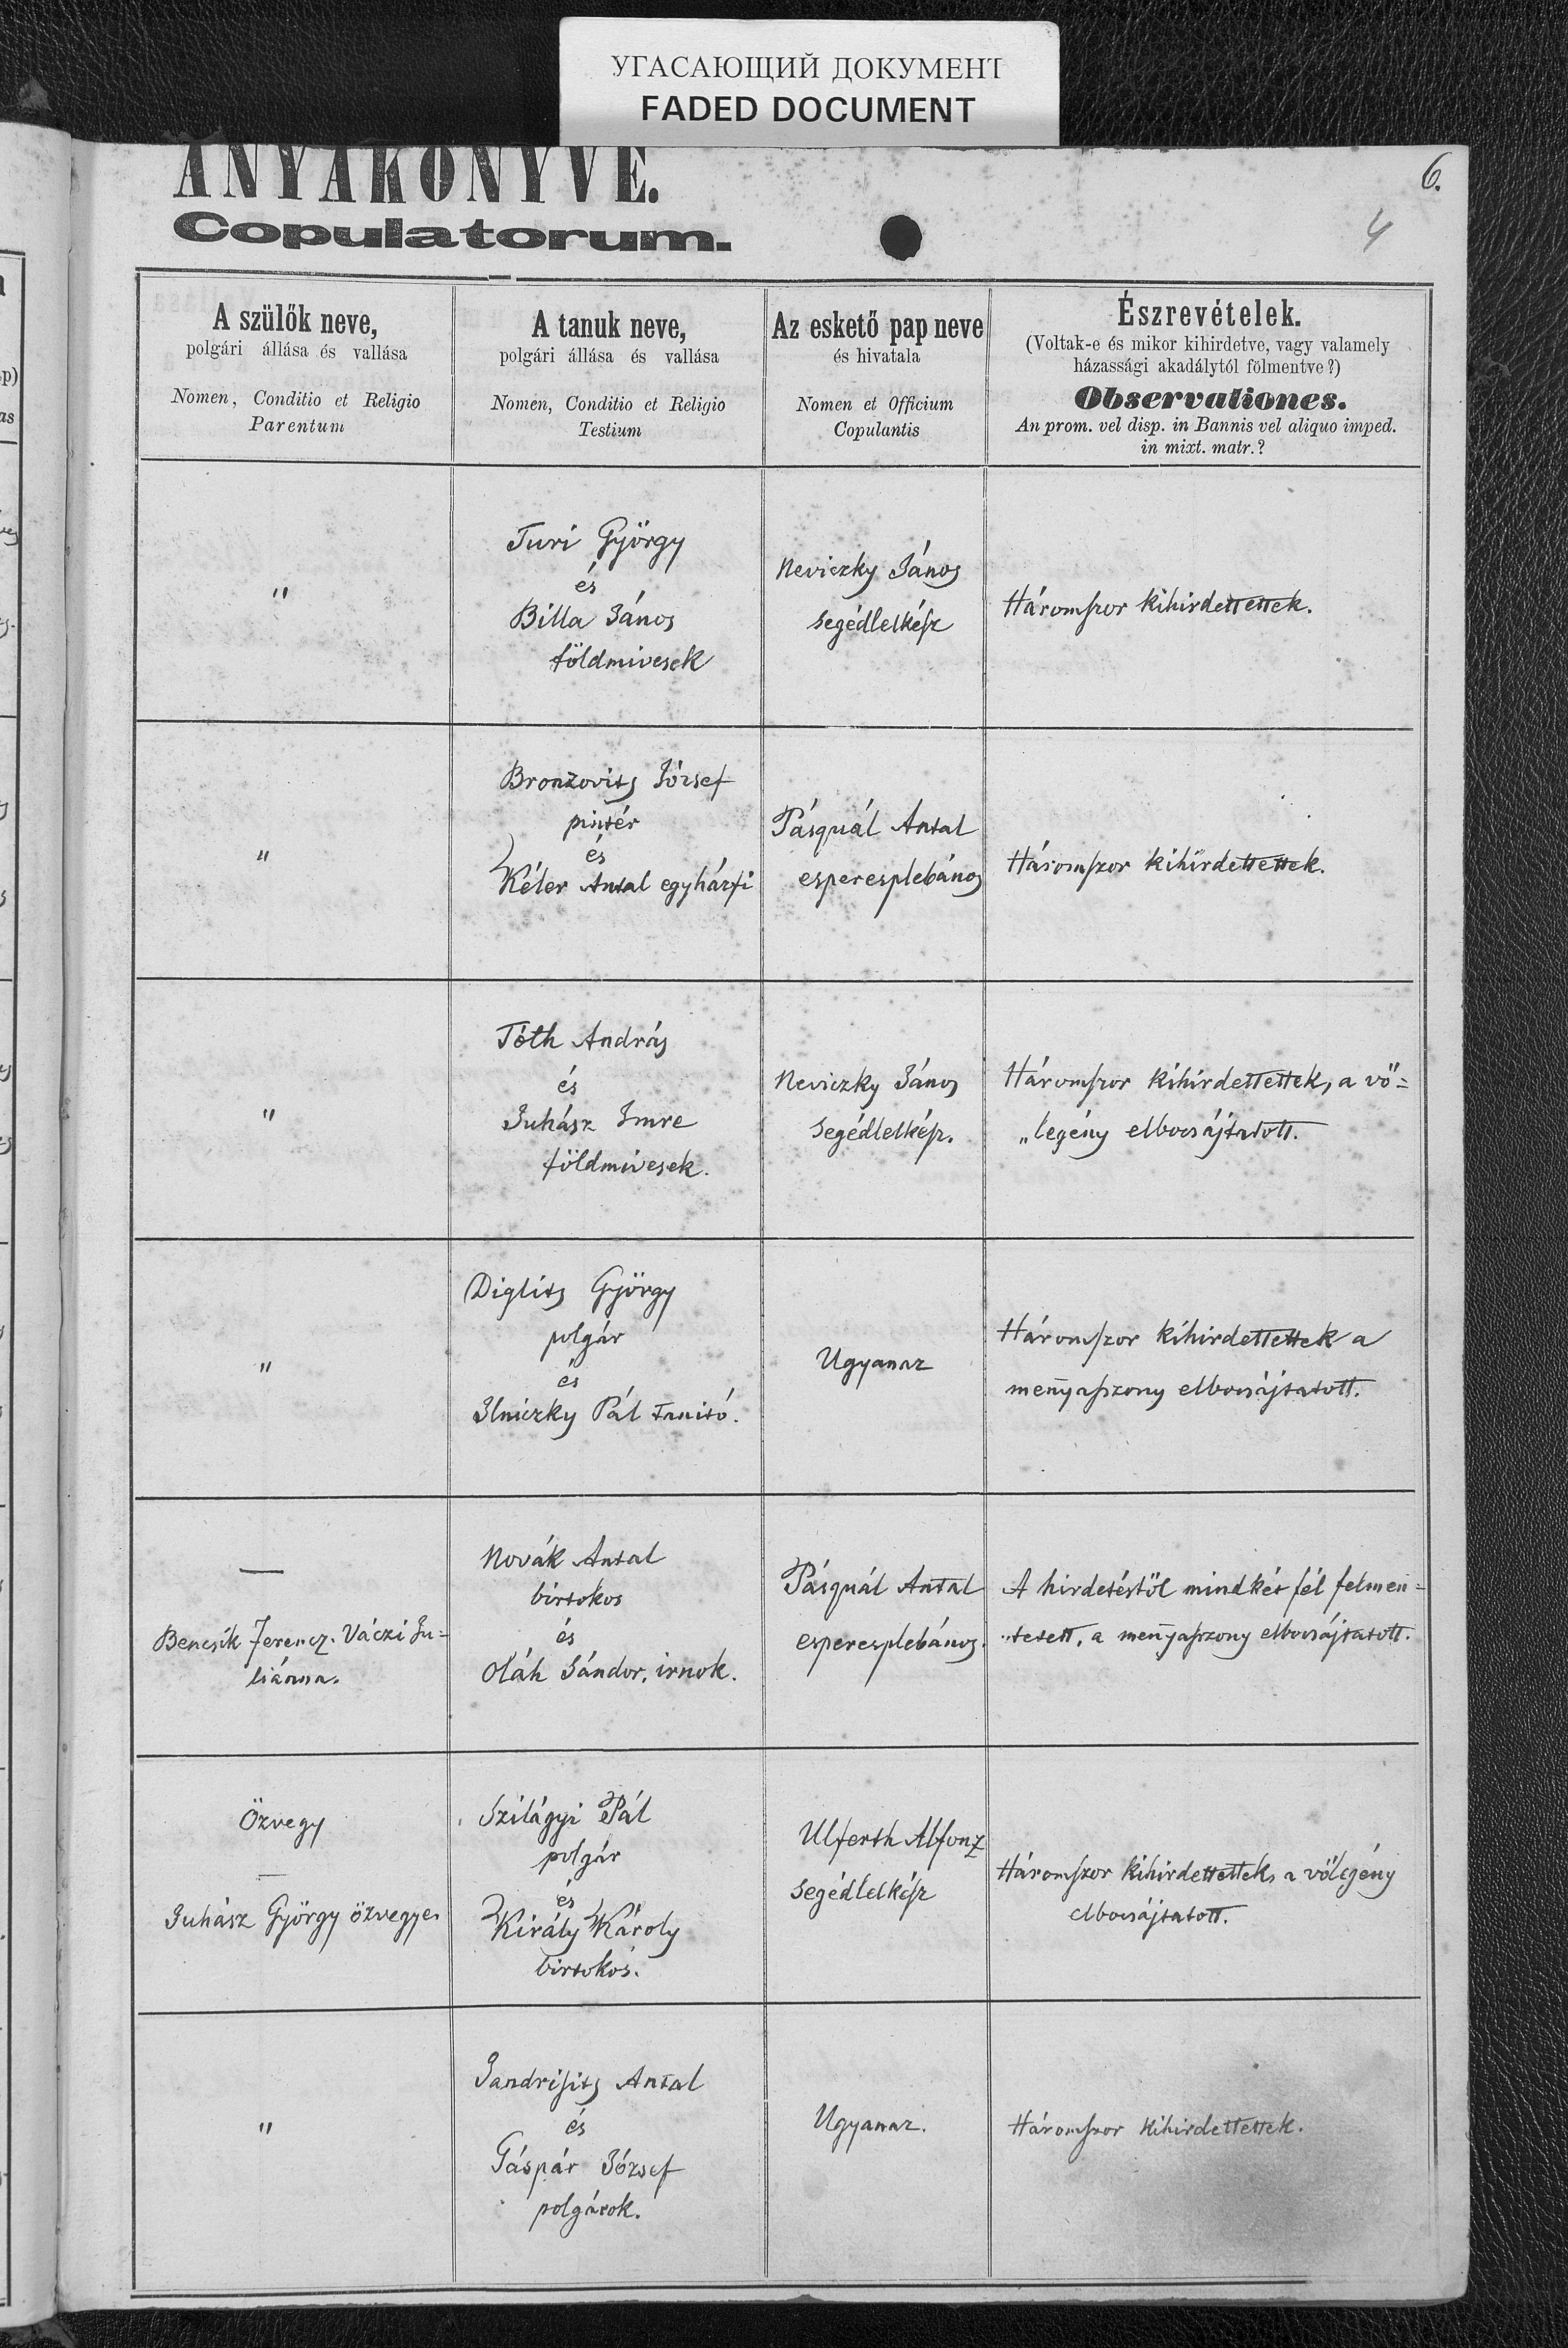 УГАСАЮЩИЙ ДОКУМЕНТ
FADED DOCUMENT
ANYAKÖNYVE.
Copulatorum.
6.
4
A szülők neve,
polgári állása és vallása
Nomen, Conditio et Religio
Parentum
A tanuk neve,
polgári állása és vallása
Nomen, Conditio et Religio
Testium
Az eskető pap neve
és hivatala
Nomen et Officium
Copulantis
Észrevételek.
(Voltak-e és mikor kihirdetve, vagy valamely
házassági akadálytól fölmentve?)
Observationes.
An prom. vel disp. in Bannis vel aliquo imped.
in mixt. matr.?
"
Turi György
és
Billa János
földmivesek
Neviczky János
segédlelkész
Háromszor kihirdettettek.
"
Bronzovits József
pintér
és
Kéler Antal egyházfi
Pásquál Antal
esperesplebános
Háromszor kihirdettettek.
"
Tóth András
és
Juhász Imre
földmivesek.
Neviczky János
segédlelkész.
Háromszor kihirdettettek, a vő=
„legény elbocsájtatott.
"
Diglits György
polgár
és
Ilniczky Pál tanitó.
Ugyanaz
Háromszor kihirdettettek a
menyaszony elbocsájtatott.
—
Bencsik Ferencz. Váczi Ju=
liánna.
Novák Antal
birtokos
és
Oláh Sándor, irnok.
Pásquál Antal
esperesplebános.
A hirdetéstől mindkét fél felmen=
„tetett, a menyaszony elbocsájtatott.
Özvegy
—
Juhász György özvegye
Szilágyi Pál
polgár
és
Király Károly
birtokos.
Ulferth Alfonz
segédlelkész
Háromszor kihirdettettek, a vőlegény
elbocsájtatott.
"
Jandrisits Antal
és
Gáspár József
polgárok.
Ugyanaz.
Háromszor kihirdettettek.